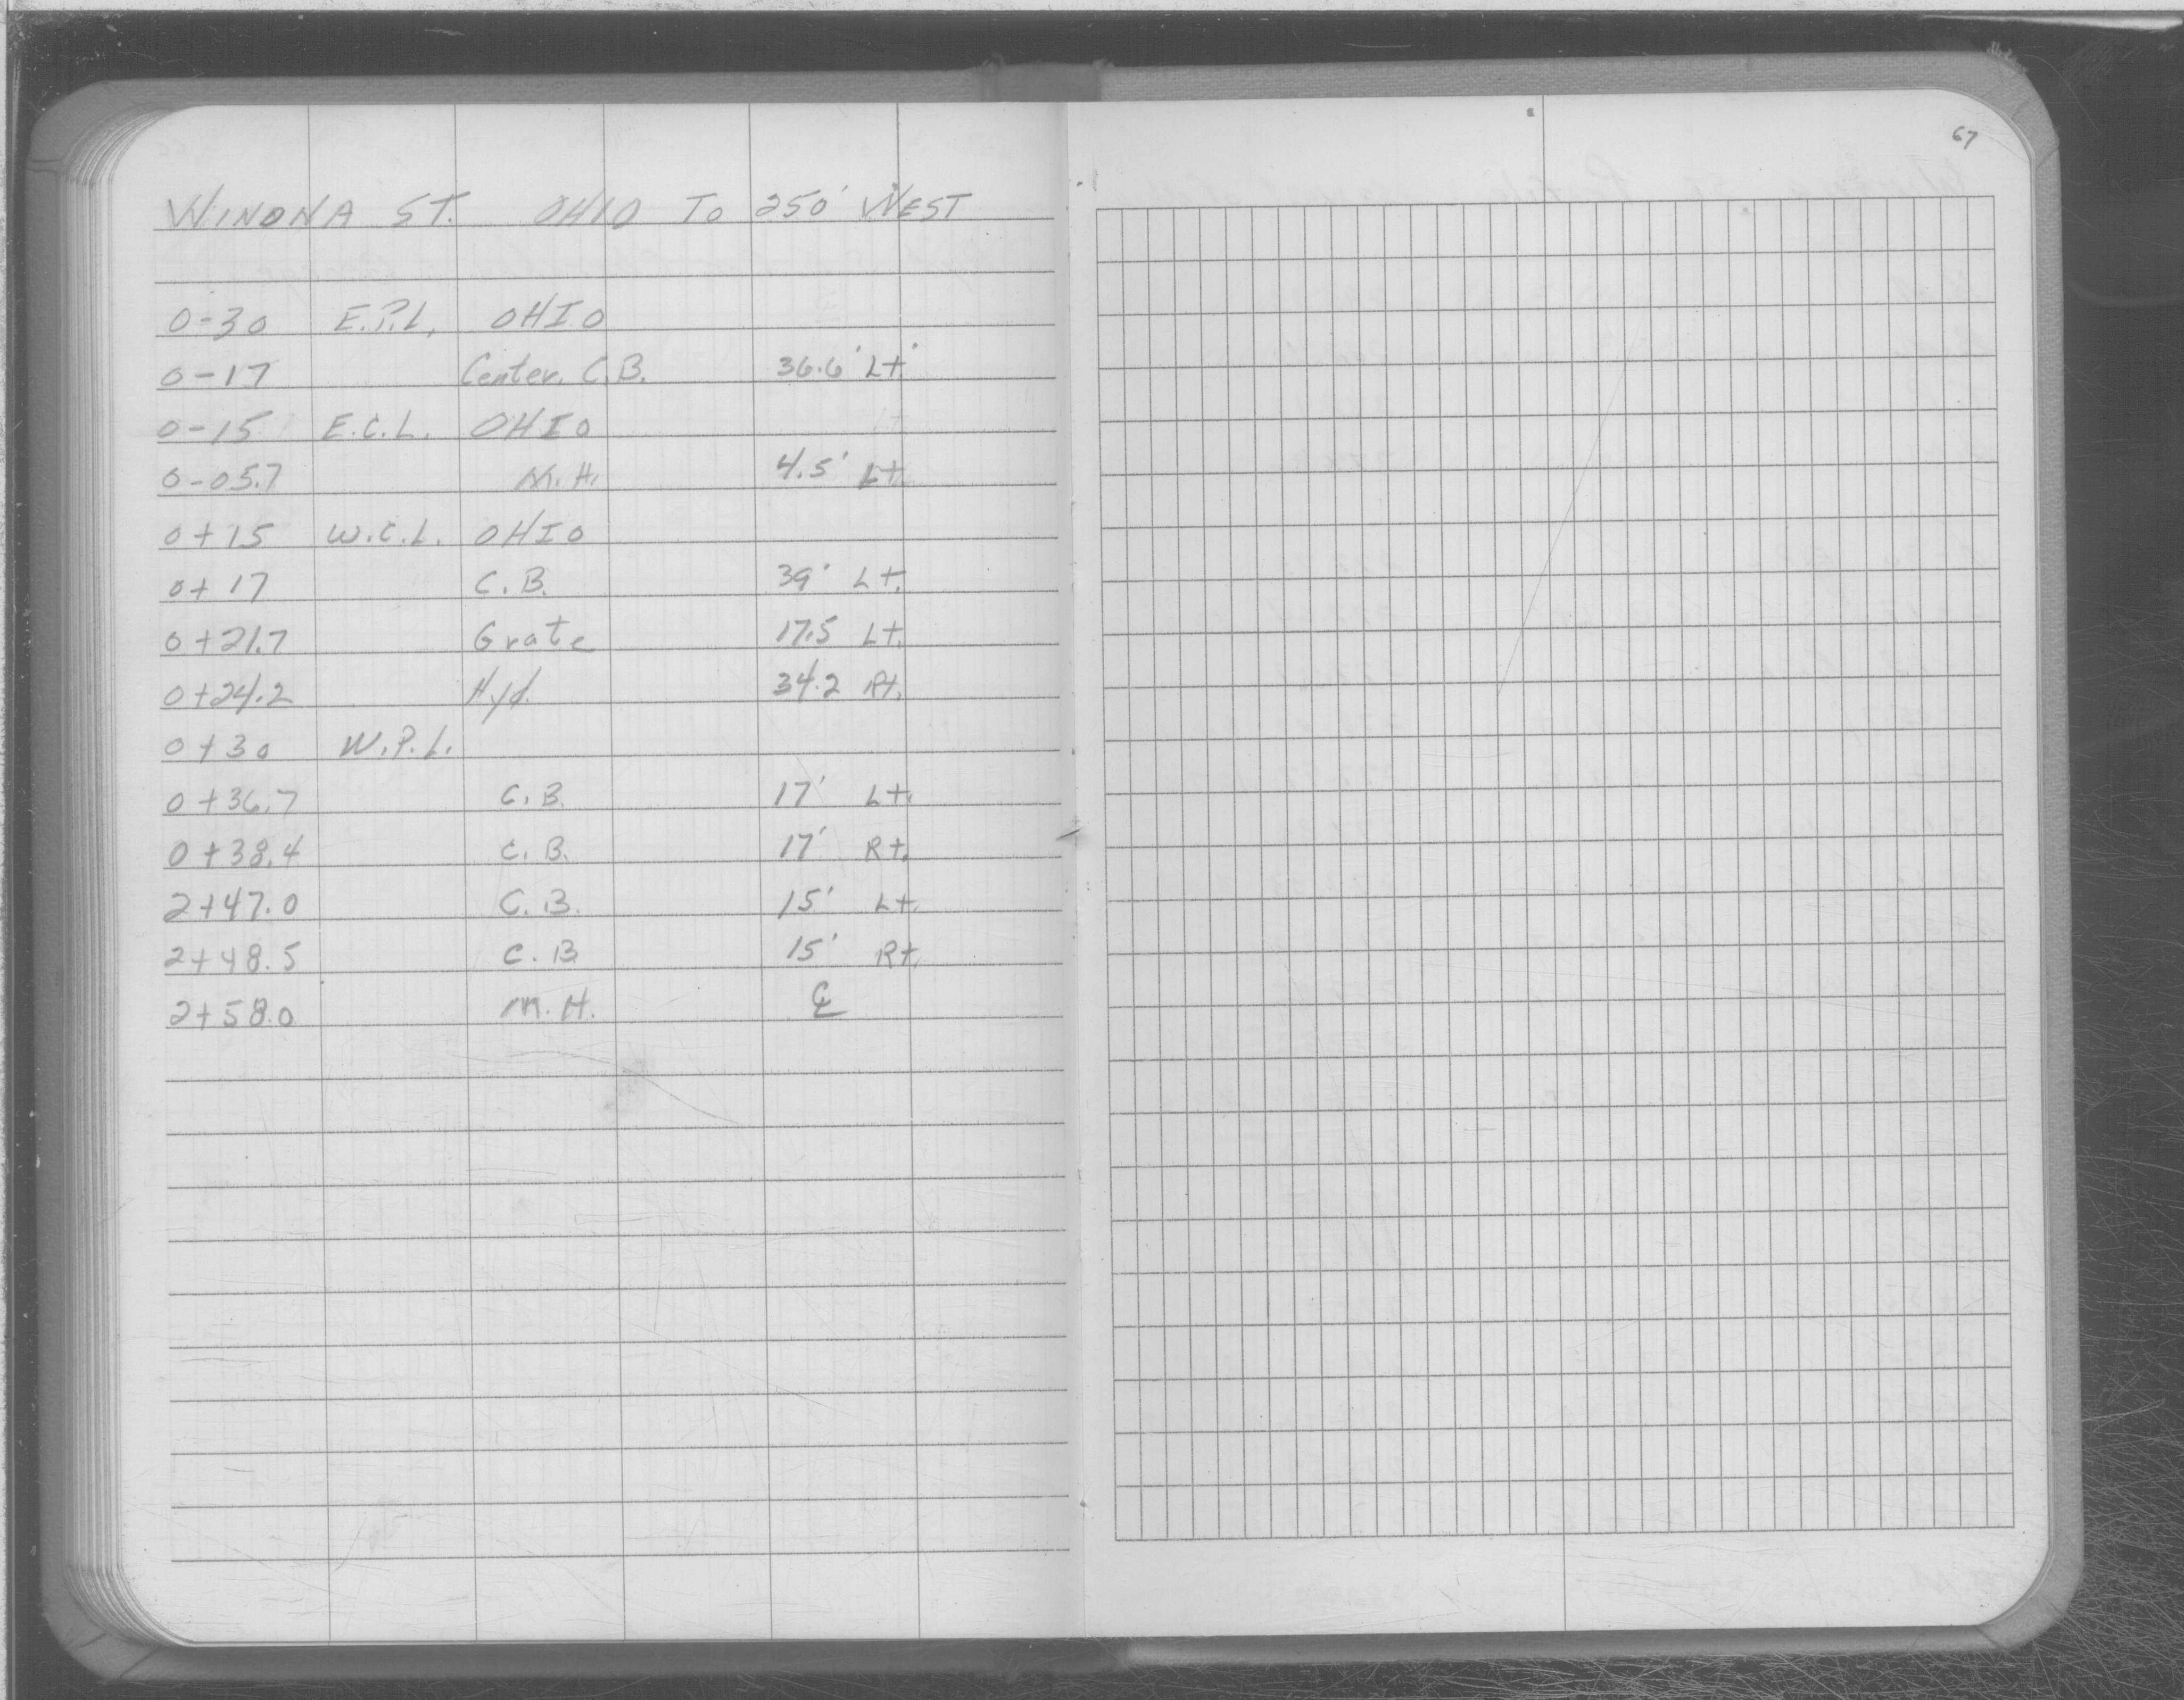 67
WINONA ST. OHIO TO 250' WEST
0-30 E.P.L. OHIO
0-17 Center C.B. 36.6' Lt.
0-15 E.C.L. OHIO
0-05.7 M.H. 4.5' Lt.
0+15 W.C.L. OHIO
0+17 C.B. 39' Lt.
0+21.7 Grate 17.5 Lt.
0+24.2 Hyd. 34.2 Rt.
0+30 W.P.L.
0+36.7 C.B. 17' Lt.
0+38.4 C.B. 17' Rt.
2+47.0 C.B. 15' Lt.
2+48.5 C.B 15' Rt.
2+58.0 M.H. ℄